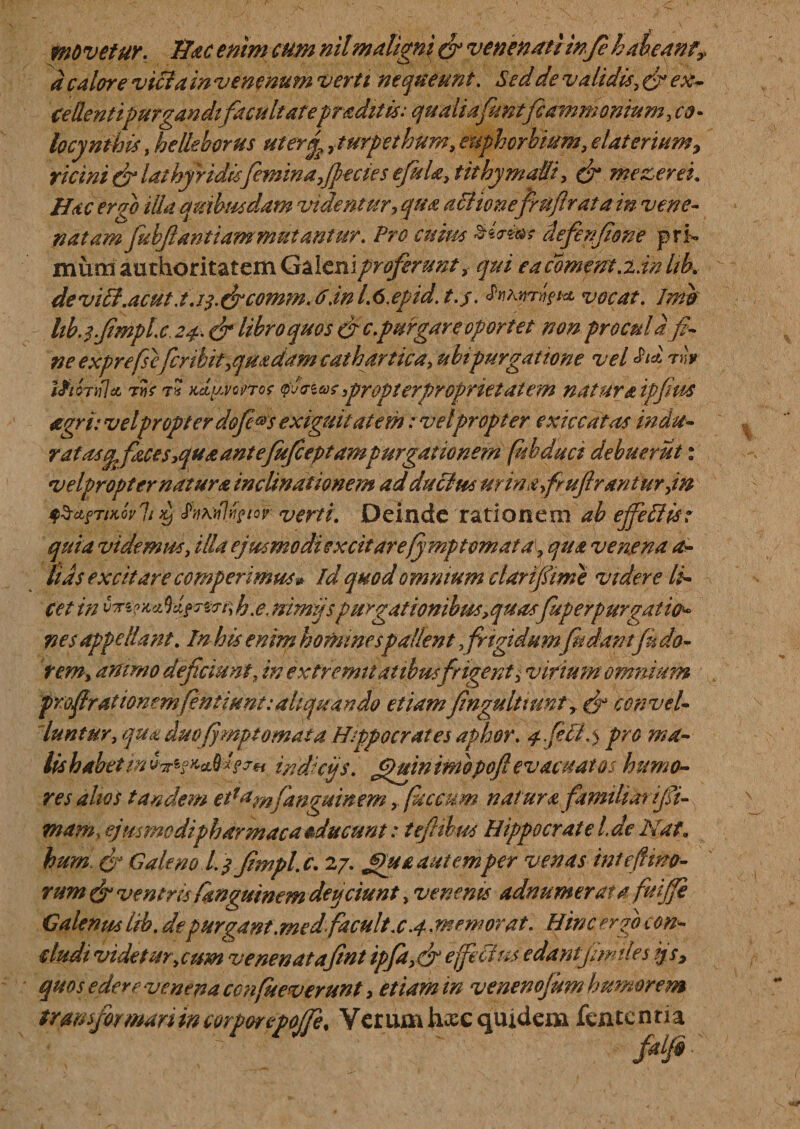 movetur. Hæc enim cum nil maligni & venenati in se habeant,
à calore victa in venenum verti nequeunt. Sed de validis, & ex-
cellenti purgandi facultate præditis: qualia sunt scammonium, co-
locynthis, helleborus uterq;, turpethum, euphorbium, elaterium,
ricini & lathyridis semina, species esulæ, tithymalli, & mezerei.
Hæc ergò illa quibusdam videntur, quæ actione frustrata in vene-
natam substantiam mutantur. Pro cuius θέσεως defensione pri-
mùm authoritatem Galeni proferunt, qui ea coment.2.in lib.
de vict.acut.t.13.& comm.6.in l.6.epid. t.5. δηλητήρια vocat. Imò
lib.3.simpl.c.24. & libro quos & c.purgare oportet non procul à fi-
ne expressè scribit, quædam cathartica, ubi purgatione vel διὰ τὴν
ἰδιότητα τῆς τοῦ κάμνοντος φύσεως, propter proprietatem naturæ ipsius
ægri: vel propter doseως exiguitatem: vel propter exiccatas indu-
ratasq; fæces, quæ ante susceptam purgationem subduci debuerūt:
vel propter naturæ inclinationem ad ductus urinæ, frustrantur, in
φθαρτικόν τι κὶ δηλητήριον verti. Deinde rationem ab effectis:
quia videmus, illa ejusmodi excitare symptomata, quæ venena a-
liàs excitare comperimus. Id quod omnium clarissimè videre li-
cet in ὑπερκαθάρσεσι, h.e. nimijs purgationibus, quas superpurgatio-
nes appellant. In his enim homines pallent, frigidum sudant sudo-
rem, animo deficiunt, in extremitatibus frigent, virium omnium
prostrationem sentiunt: aliquando etiam singultiunt, & convel-
luntur, quæ duo symptomata Hippocrates aphor. 4.sect.5 pro ma-
lis habet in ὑπερκαθάρσει indicijs. Quin imò post evacuatos humo-
res alios tandem etiam sanguinem, succum naturæ familiarissi-
mam, ejusmodi pharmaca educunt: testibus Hippocrate l.de Nat.
hum. & Galeno l.3 simpl.c. 27. Quæ autem per venas intestino-
rum & ventris sanguinem dejiciunt, venenis adnumerata fuisse
Galenus lib. de purgant.med.facult.c.4.memorat. Hinc ergò con-
cludi videtur, cum venenata sint ipsa, & effectus edant similes ijs,
quos edere venena consueverunt, etiam in venenosum humorem
transformari in corpore posse. Verum hæc quidem sententia
falsò